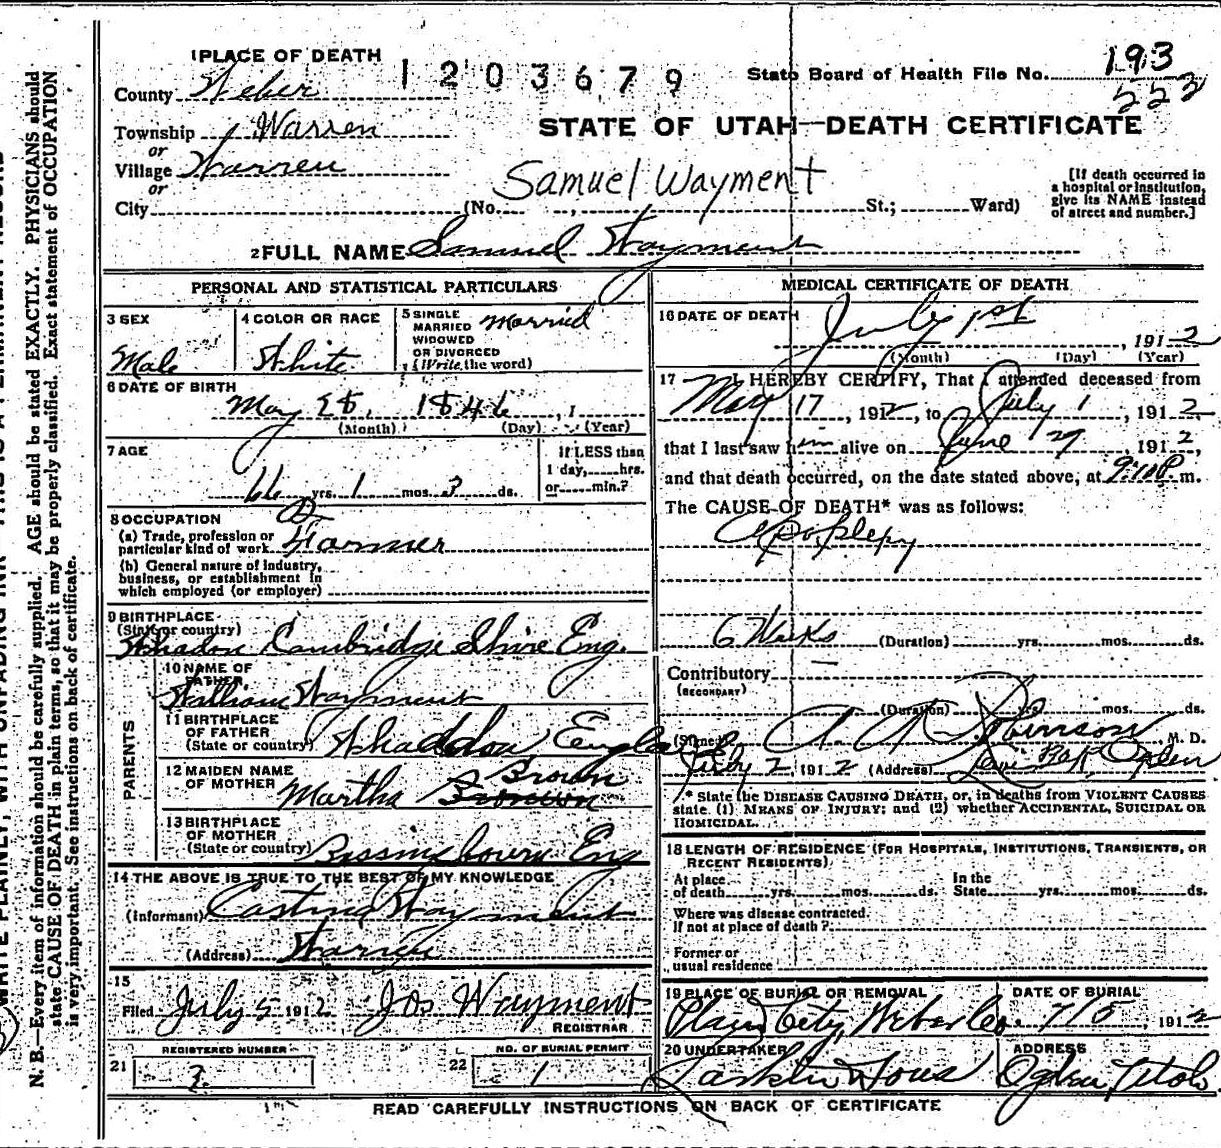 1 PLACE OF DEATH
1203679
State Board of Health File No. 193
222
County Weber
STATE OF UTAH—DEATH CERTIFICATE
Township Warren
or
Village Warren
or
Samuel Wayment
[If death occurred in a hospital or institution, give its NAME instead of street and number.]
City (No. , St.; Ward)
2 FULL NAME Samuel Wayment
PERSONAL AND STATISTICAL PARTICULARS
3 SEX
Male
4 COLOR OR RACE
White
5 SINGLE MARRIED WIDOWED OR DIVORCED (Write the word) Married
6 DATE OF BIRTH
May 28, 1846, 1
(Month) (Day) (Year)
7 AGE
66 yrs. 1 mos. 3 ds.
If LESS than 1 day, hrs. or min.?
8 OCCUPATION
(a) Trade, profession or particular kind of work Farmer
(b) General nature of industry, business, or establishment in which employed (or employer)
9 BIRTHPLACE
(State or country)
Whaddon Cambridge Shire Eng.
PARENTS
10 NAME OF FATHER
William Wayment
11 BIRTHPLACE OF FATHER
(State or country) Whaddon England
12 MAIDEN NAME OF MOTHER Martha Brown
13 BIRTHPLACE OF MOTHER
(State or country) Eng
14 THE ABOVE IS TRUE TO THE BEST OF MY KNOWLEDGE
(Informant) Wayment
(Address) Warren
15
Filed July 5 1912 Jos Wayment
REGISTRAR
REGISTERED NUMBER
21
NO. OF BURIAL PERMIT
22 1
MEDICAL CERTIFICATE OF DEATH
16 DATE OF DEATH
July 1st, 1912
(Month) (Day) (Year)
17 I HEREBY CERTIFY, That I attended deceased from
May 17, 1912, to July 1, 1912,
that I last saw him alive on June 27 1912,
and that death occurred, on the date stated above, at 9:10 P. m.
The CAUSE OF DEATH* was as follows:
Apoplexy
6 Weeks (Duration) yrs. mos. ds.
Contributory
(SECONDARY)
(Duration) yrs. mos. ds.
(Signed) A. A. Robinson M. D.
July 2, 1912 (Address) Ogden
* State the DISEASE CAUSING DEATH, or, in deaths from VIOLENT CAUSES state (1) MEANS OF INJURY; and (2) whether ACCIDENTAL, SUICIDAL OR HOMICIDAL.
18 LENGTH OF RESIDENCE (FOR HOSPITALS, INSTITUTIONS, TRANSIENTS, OR RECENT RESIDENTS)
At place of death yrs. mos. ds. In the State yrs. mos. ds.
Where was disease contracted. If not at place of death?
Former or usual residence
19 PLACE OF BURIAL OR REMOVAL
Plain City, Weber Co.
DATE OF BURIAL
7/5, 1912
20 UNDERTAKER
Larkin & Sons
ADDRESS
Ogden, Utah
READ CAREFULLY INSTRUCTIONS ON BACK OF CERTIFICATE
WRITE PLAINLY, WITH UNFADING INK—THIS IS A PERMANENT RECORD
N. B.—Every item of information should be carefully supplied. AGE should be stated EXACTLY. PHYSICIANS should
state CAUSE OF DEATH in plain terms, so that it may be properly classified. Exact statement of OCCUPATION
is very important. See instructions on back of certificate.